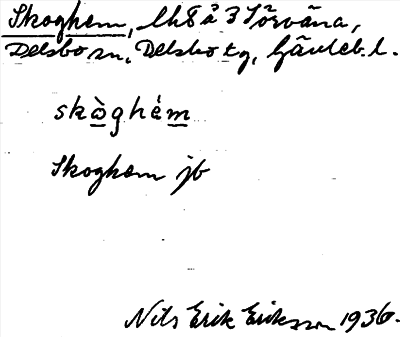 Skoghem, lh 8 å 3 Sörväna,
Delsbo sn, Delsbo tg, Gävleb. l.
skò̲ghém̲
Skoghem jb
Nils Erik Eriksson 1936.